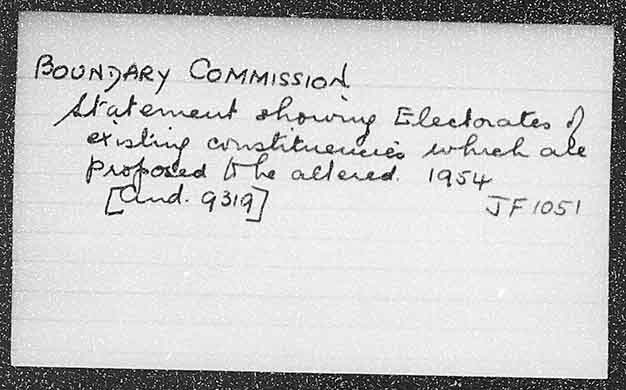 BOUNDARY COMMISSION.
Statement showing Electorates of
existing constituencies which are
proposed to be altered. 1954
[Cmd. 9319] JF1051